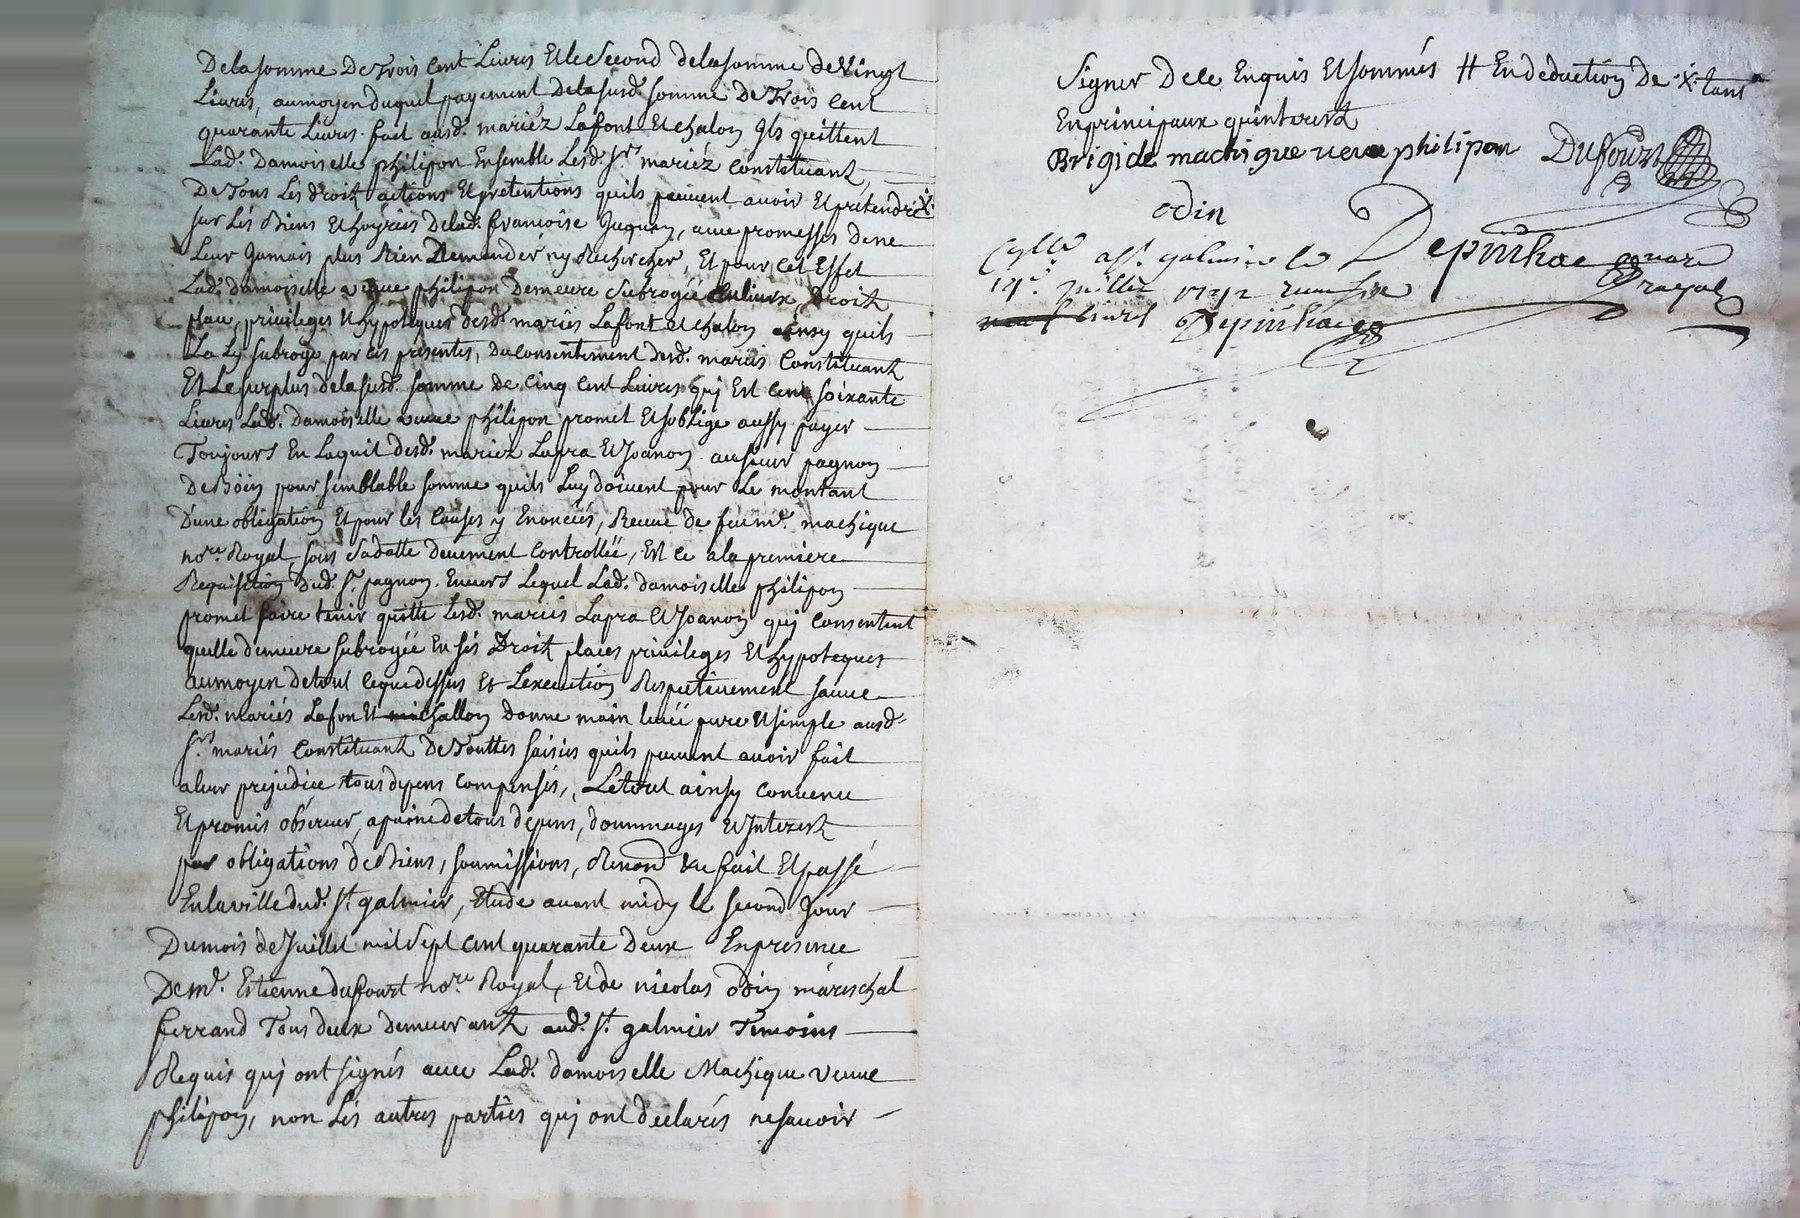 De la somme De Trois Cent Livres Et le Second de la somme de Vingt
Livres, au moyen duquel payement de la susd. somme De Trois Cent
quarante Livres fait ausd. mariéz Lafont Et chalon Ils quittent
Lad. Damoiselle philipon Ensemble Lesd. Srs mariéz Constituant
De Tous Les droit actions Et pretentions quils peuvent avoir Et prétendre X
sur Lés Biens Et hoyries De lad. francoise Juquon, avec promesses de ne
Leur Jamais plus Rien Demander ny Rechercher, Et pour Cet Effet
Lad. damoiselle veuve philipon Demeure Subrogée Droit
place, privileges Et hypoteques desd. mariés Lafont Et chalon ainsy quils
La Ly subroge par Ces présentes, du consentement desd. mariés Constituant
Et Le surplus de la susd. somme de Cinq Cent Livres qui Est Cent soixante
Livres Lad. Damoiselle veuve philipon promet Et soblige aussy payer
Toujours En Laquit desd. mariéz Lapra Et Joanon au sieur pagnon
De Böin pour semblable somme quils Luy doivent pour Le montant
D'une obligation Et pour les Causes y Enoncées, Receue de feu me. machique
nore. Royal, sous Sa datte deuement Controllée, Et Ce a la premiere
Requisition Dud. Sr. pagnon. Envers Lequel Lad. damoiselle philipon
promet faire tenir quitte Lesd. mariés Lapra Et Joanon qui Consentent
quelle demeure subrogée En Sés Droit places privileges Et hypoteques
au moyen de tout Ce que dessus Et Lexecution Respectivement sauve
Lesd. mariés Lafon Et challon donne main levéé pure Et simple ausd.
Srs mariés Constituant De Touttes saisies quils peuvent avoir fait
a leur prejudice tous depens Compensés, Le tout ainsy Convenu
Et promis observer, a peine de tous dépens, dommages Et Interest
par obligations de Biens, soumissions, Renond &c fait Et passé
En la ville dud. St. galmier, Etude avant midy le second Jour
Du mois de Juillet mil Sept Cent quarante deux En presence
De me. Estienne dufourt nore. Royal, Et de nicolas odin maréschal
ferrand Tous deux demeurant aud. St. galmier Temoins
Requis qui ont signés avec Lad. damoiselle Machique veuve
philipon, non Lés autres parties qui ont declarés ne savoir
Signer De Ce Enquis Et sommés # En deduction De X tant
En principaux qu'interest
Brigide machique veuve philipon Dufourt
odin
Depinhac
Depinhac